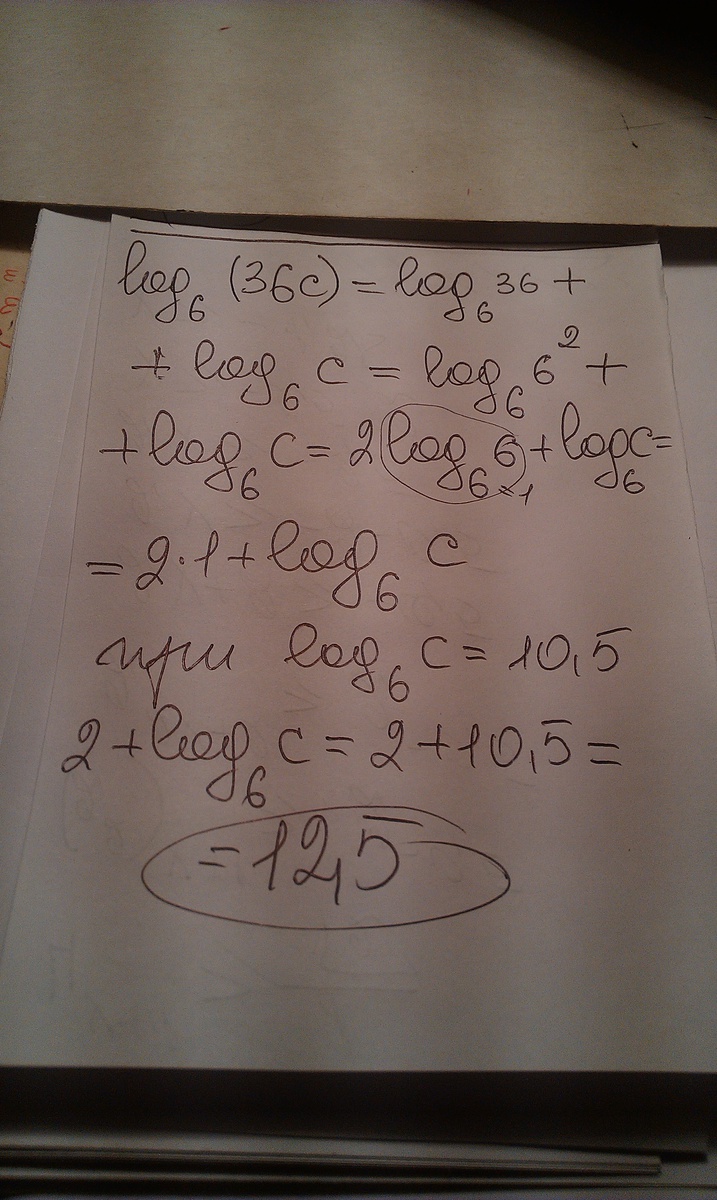 log₆ (36c) = log₆ 36 +
+ log₆ c = log₆ 6² +
+ log₆ c = 2 log₆ 6 + log₆ c =
=1
= 2·1 + log₆ c
при log₆ c = 10,5
2 + log₆ c = 2 + 10,5 =
= 12,5